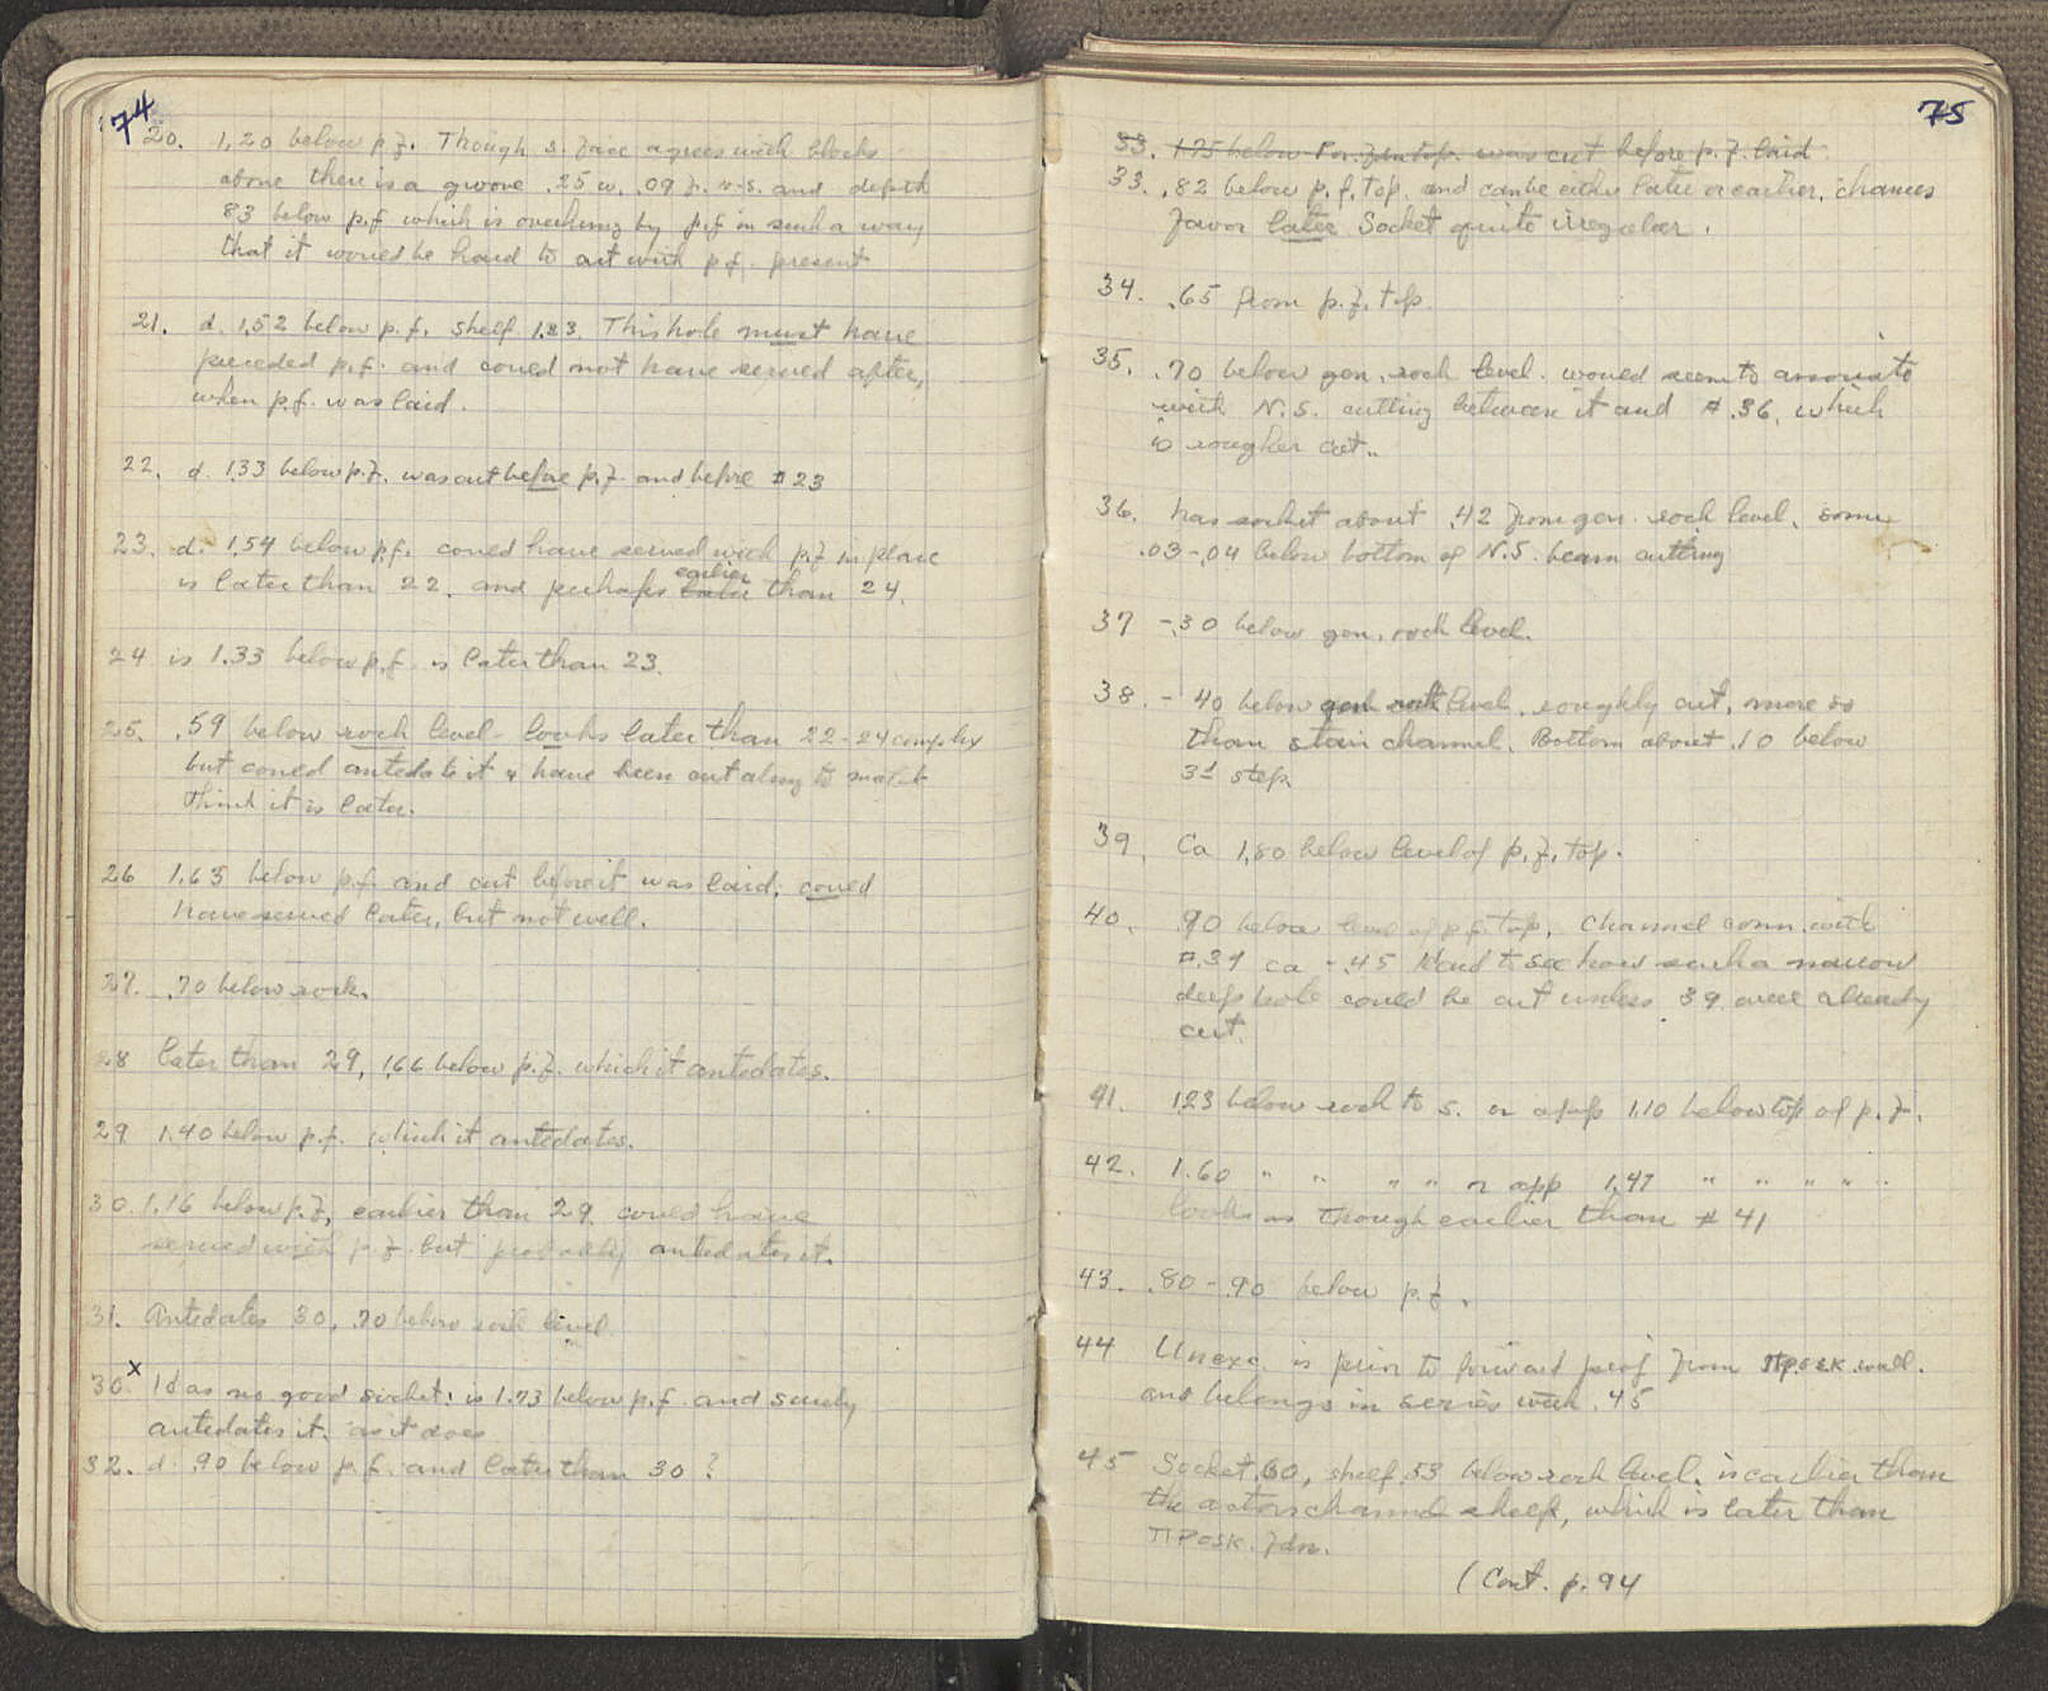 74
20. 1,20 below p.f. Though s. face agrees with blocks
above there is a groove .25 w. .09 f. n-s. and depth
83 below p.f which is overhung by p.f in such a way
that it would be hard to cut with p.f. present
21. d. 1,52 below p.f. shelf 1.23. This hole must have
preceded p.f. and could not have served after,
when p.f. was laid.
22. d. 1.33 below p.f. was cut before p.f. and before #23
23. d. 1,54 below p.f. could have served with p.f in place
is later than 22. and perhaps earlier later than 24.
24 is 1.33 below p.f. is later than 23.
25. .59 below rock level - looks later than 22-24 complex
but could antedate it & have been cut along to match
think it is later.
26 1.63 below p.f. and cut before it was laid; could
have served later, but not well.
27. .70 below rock.
28 later than 29, 1,66 below p.f. which it antedates.
29 1,40 below p.f. which it antedates.
30. 1.16 below p.f, earlier than 29. could have
served with p.f. but probably antedates it.
31. Antedates 30, .70 below rock level
30.x Has no good socket: is 1.73 below p.f. and surely
antedates it. as it does
32. d. .90 below p.f. and later than 30 ?
75
33. 1.75 below top. was cut before p.f. laid
33. .82 below p.f. top. and can be either later or earlier. chances
favor later Socket quite irregular.
34. .65 from p.f. top.
35. .70 below gen. rock level. would seem to associate
with N.S. cutting between it and #.36, which
is rougher cut..
36. has socket about .42 from gen. rock level, some
.03-.04 below bottom of N.S. beam cutting
37 -.30 below gen. rock level.
38. - 40 below gen rock level. roughly cut, more so
than stair channel. Bottom about .10 below
3d step.
39. Ca 1,80 below level of p.f. top.
40. .90 below level of p.f. top. Channel conn. with
#.39 ca -.45 Hard to see how such a narrow
deep hole could be cut unless 39 were already
cut.
41. 1.23 below rock to s. or app 1.10 below top of p.f.
42. 1.60 " " " " or app 1.47 " " " " "
looks as though earlier than #41
43. .80-.90 below p.f.
44 Unexc. is prior to forward proj from ΠΡΟΣΚ. wall.
and belongs in series with .45
45 Socket .60, shelf .53 below rock level. is earlier than
the actors channel shelf, which is later than
ΠΡΟΣΚ. fdn.
(Cont. p. 94